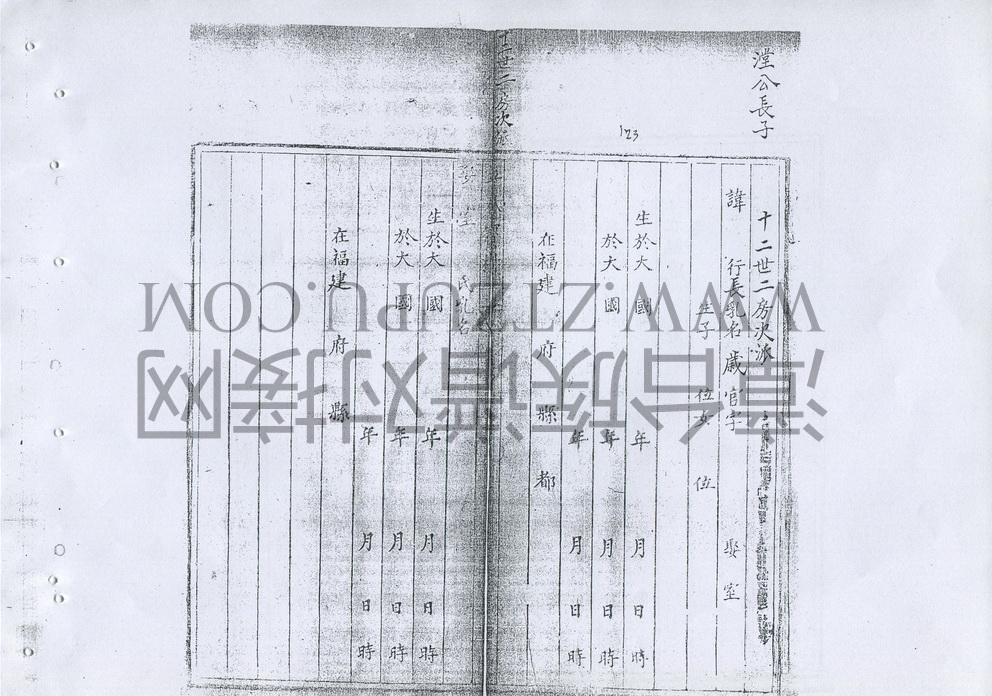 瀅公長子
123
十二世二房次派
諱 行長乳名歲官字 娶室
生子 位女 位
生於大 國 年 月 日 時
於大 國 年 月 日 時
年 月 日 時
在福建 府 縣 都
十二世二房次派
娶室 氏乳名
生於大 國 年 月 日 時
於大 國 年 月 日 時
年 月 日 時
在福建 府 縣
WWW.ZTZUPU.COM
漳台族谱对接网